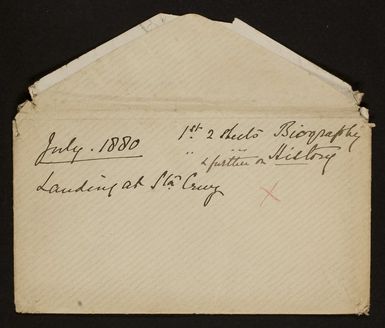 July. 1880
1st 2 sheets Biography
" " " & further on History
Landing at Sta Cruz
X